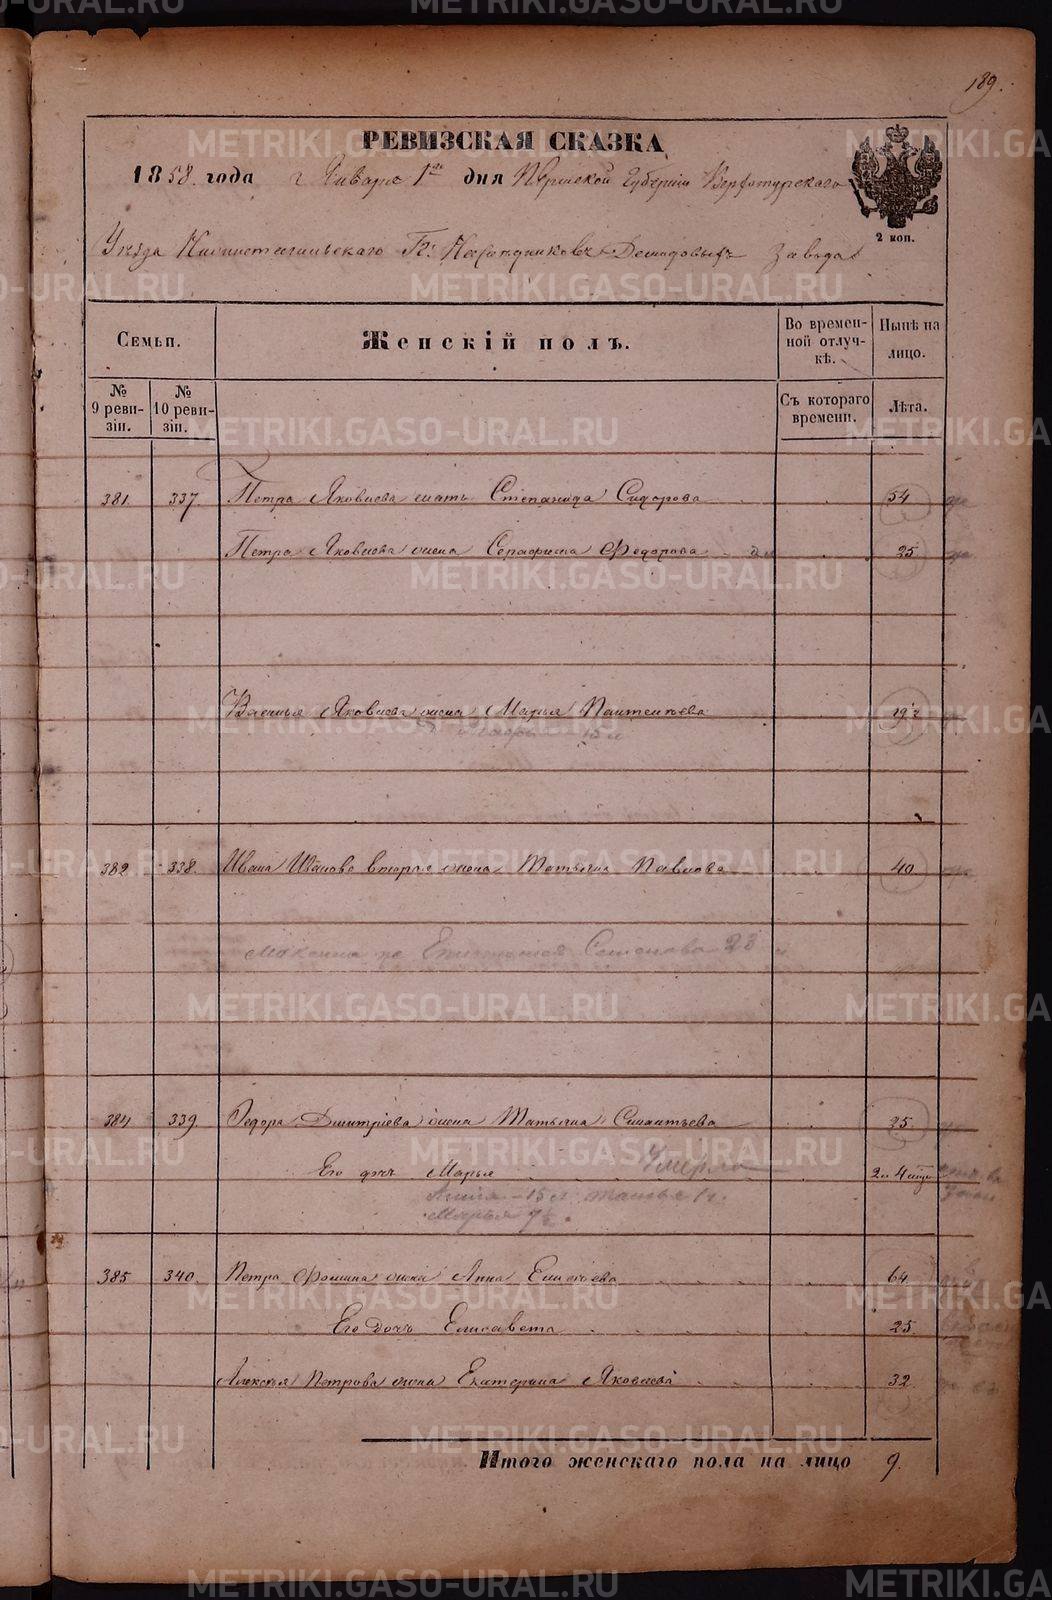 189.
РЕВИЗСКАЯ СКАЗКА
1858 года Января 1го дня Пермской Губернии Верхотурскаго
2 коп.
Уезда Нижнетагильскаго Гг. Наследников Демидовых Завода
Семьи.
Женскій полъ.
Во времен-
ной отлуч-
кѣ.
Нынѣ на
лицо.
№
9 реви-
зіи.
№
10 реви-
зіи.
Съ котораго
времени.
Лѣта.
381. 337. Петра Яковлева мать Степанида Сидорова 54
Петра Яковлева жена Серафима Федорова 25
Василья Яковлева жена Марья Пантелеева 19½
15 л
382. 338. Ивана Иванова вторая жена Татьяна Павлова 40
Семенова 23
384 339. Федора Дмитріева жена Татьяна Силантьева 35
Его дочь Марья Умерла 2 4
15 л
Марья 9½
385 340. Петра Фомина жена Анна Елисеева 64.
Его дочь Елисавета 25.
Алексея Петрова жена Екатерина Яковлева 32
Итого женскаго пола на лицо 9.
METRIKI.GASO-URAL.RU